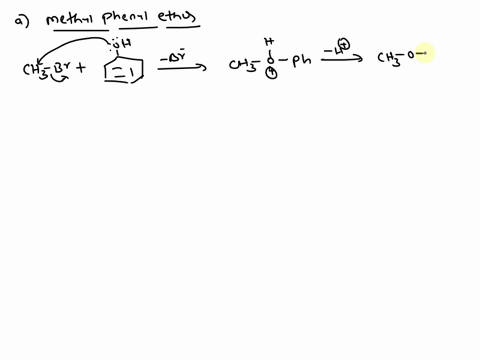 a) methyl phenyl ether
:ÖH H
CH₃-Br + -Br⁻ CH₃-O-Ph -H⁺ CH₃-O-
⊕